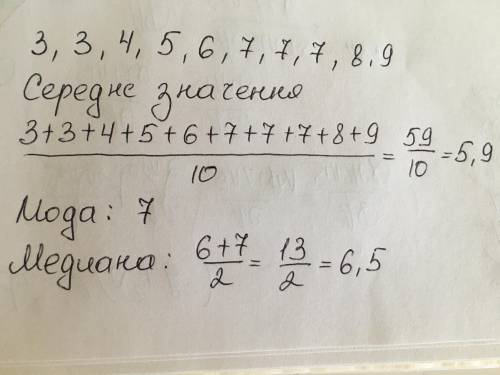 3, 3, 4, 5, 6, 7, 7, 7, 8, 9
Середнє значення
3+3+4+5+6+7+7+7+8+9/10 = 59/10 = 5,9
Мода: 7
Медиана: 6+7/2 = 13/2 = 6,5